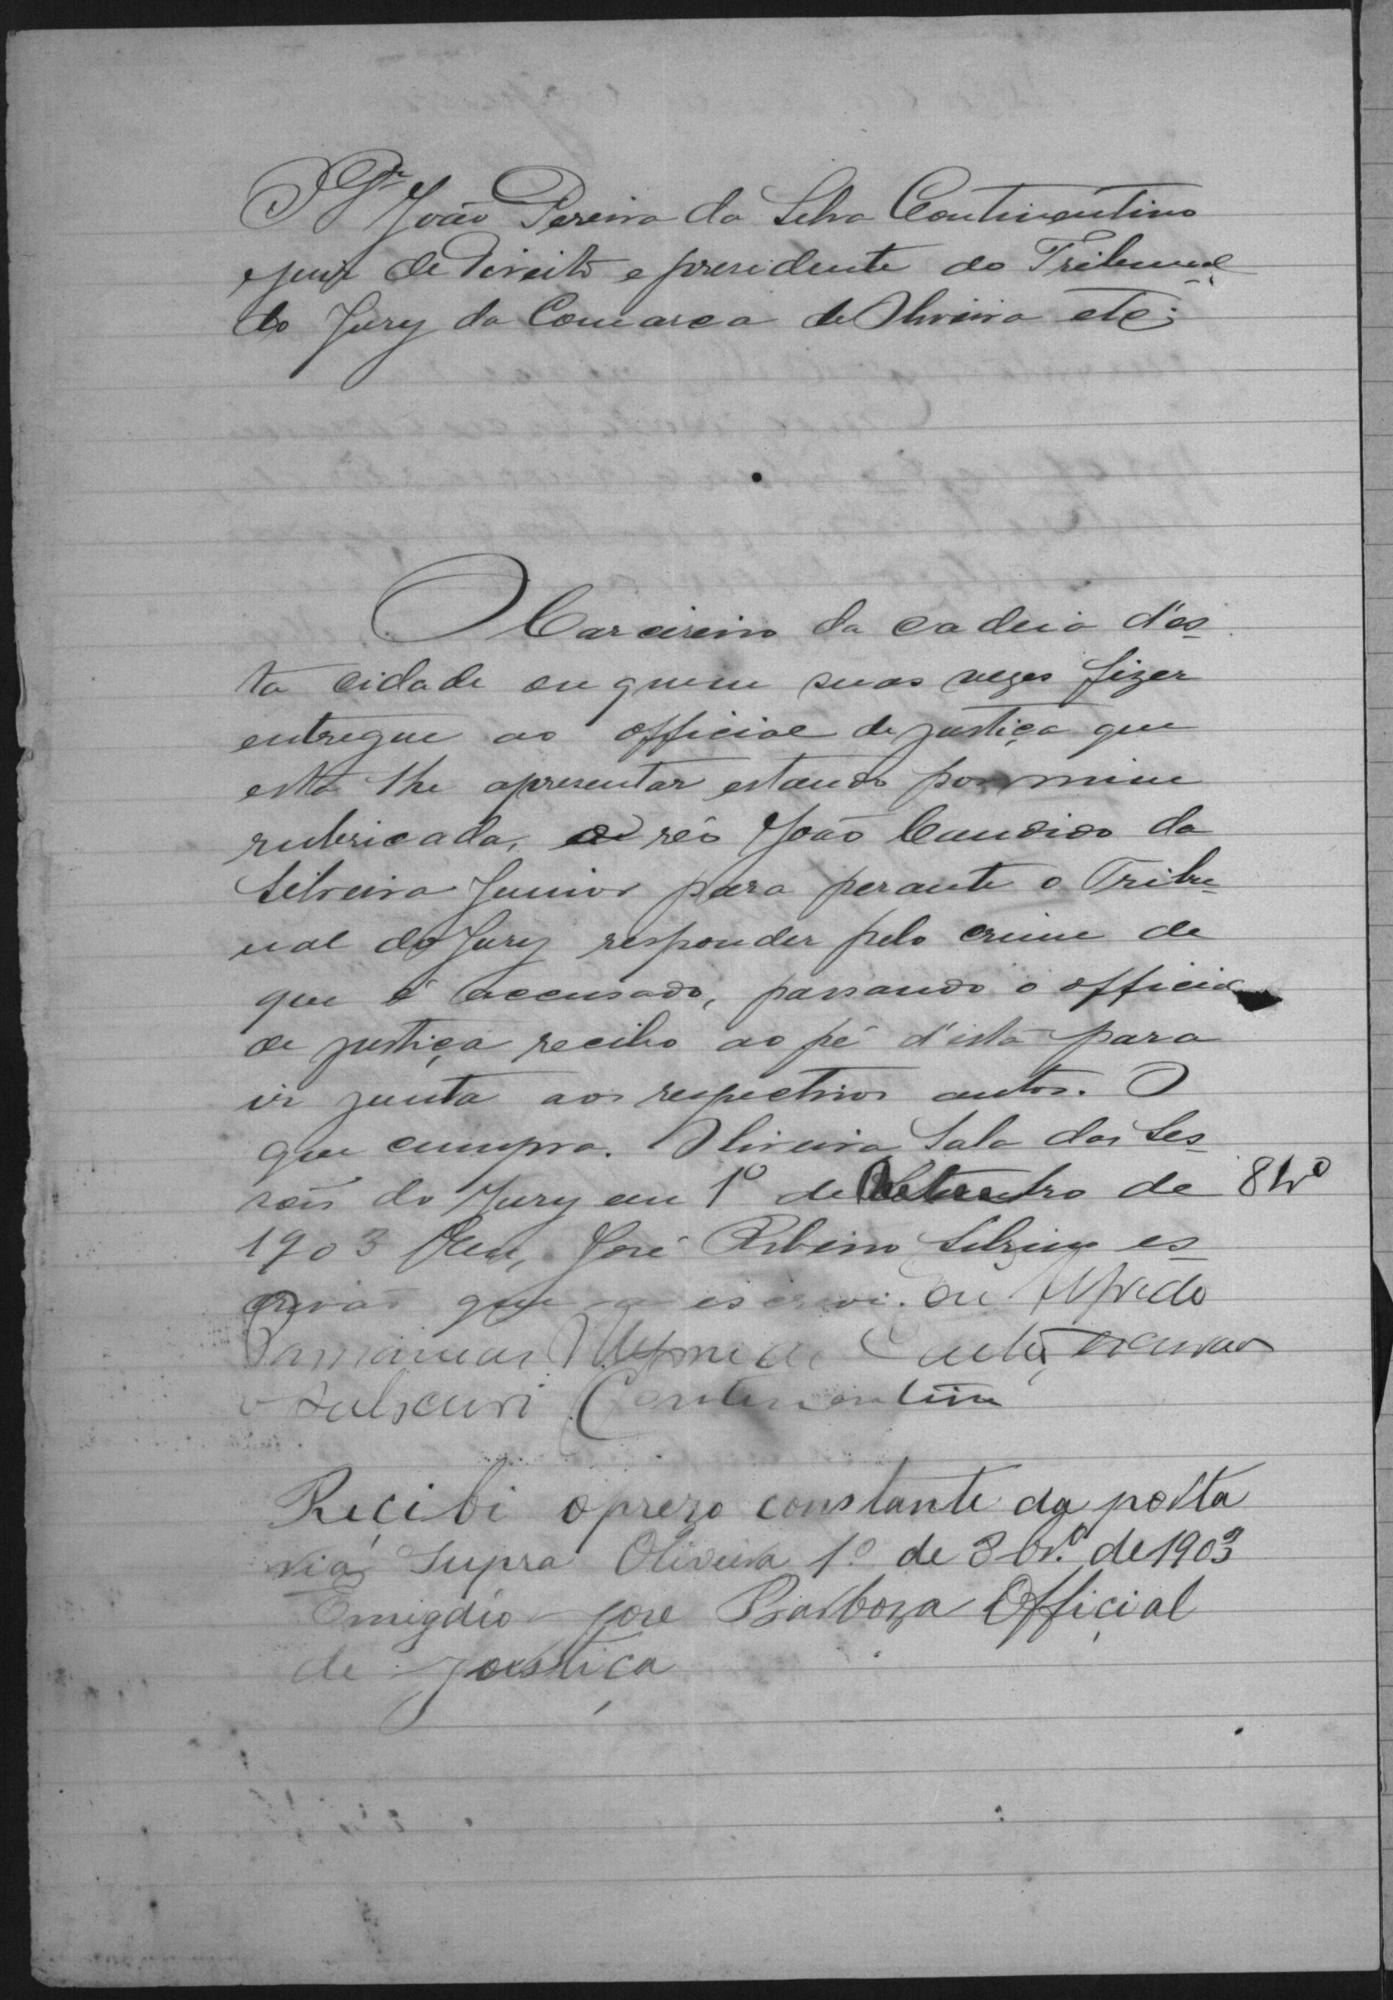 Dr João Pereira da Silva Continentino
juiz de Direito e presidente do Tribunal
do Jury da Comarca de Oliveira etc.
O Carcereiro da cadeia d'es-
ta cidade ou quem suas vezes fizer
entregue ao official de justiça que
esta lhe apresentar estando por mim
rubricada, o réo João Candido da
Silveira Junior para perante o Tribu-
nal do Jury responder pelo crime de
que é accusado, passando o official
de justiça recibo ao pé d'esta para
ir junta aos respectivos autos. O
que cumpra. Oliveira Sala das Ses-
sões do Jury em 1º de Outubro de 8brº
1903 Eu, José Ribeiro Silva es-
crivão que a escrevi. Eu Alfredo
Castro, escrivão
o subscrevi Continentino
Recibi o prezo constante da porta
ria supra Oliveira 1º de 8brº de 1903
Emigdio Jose Barboza Official
de Justiça